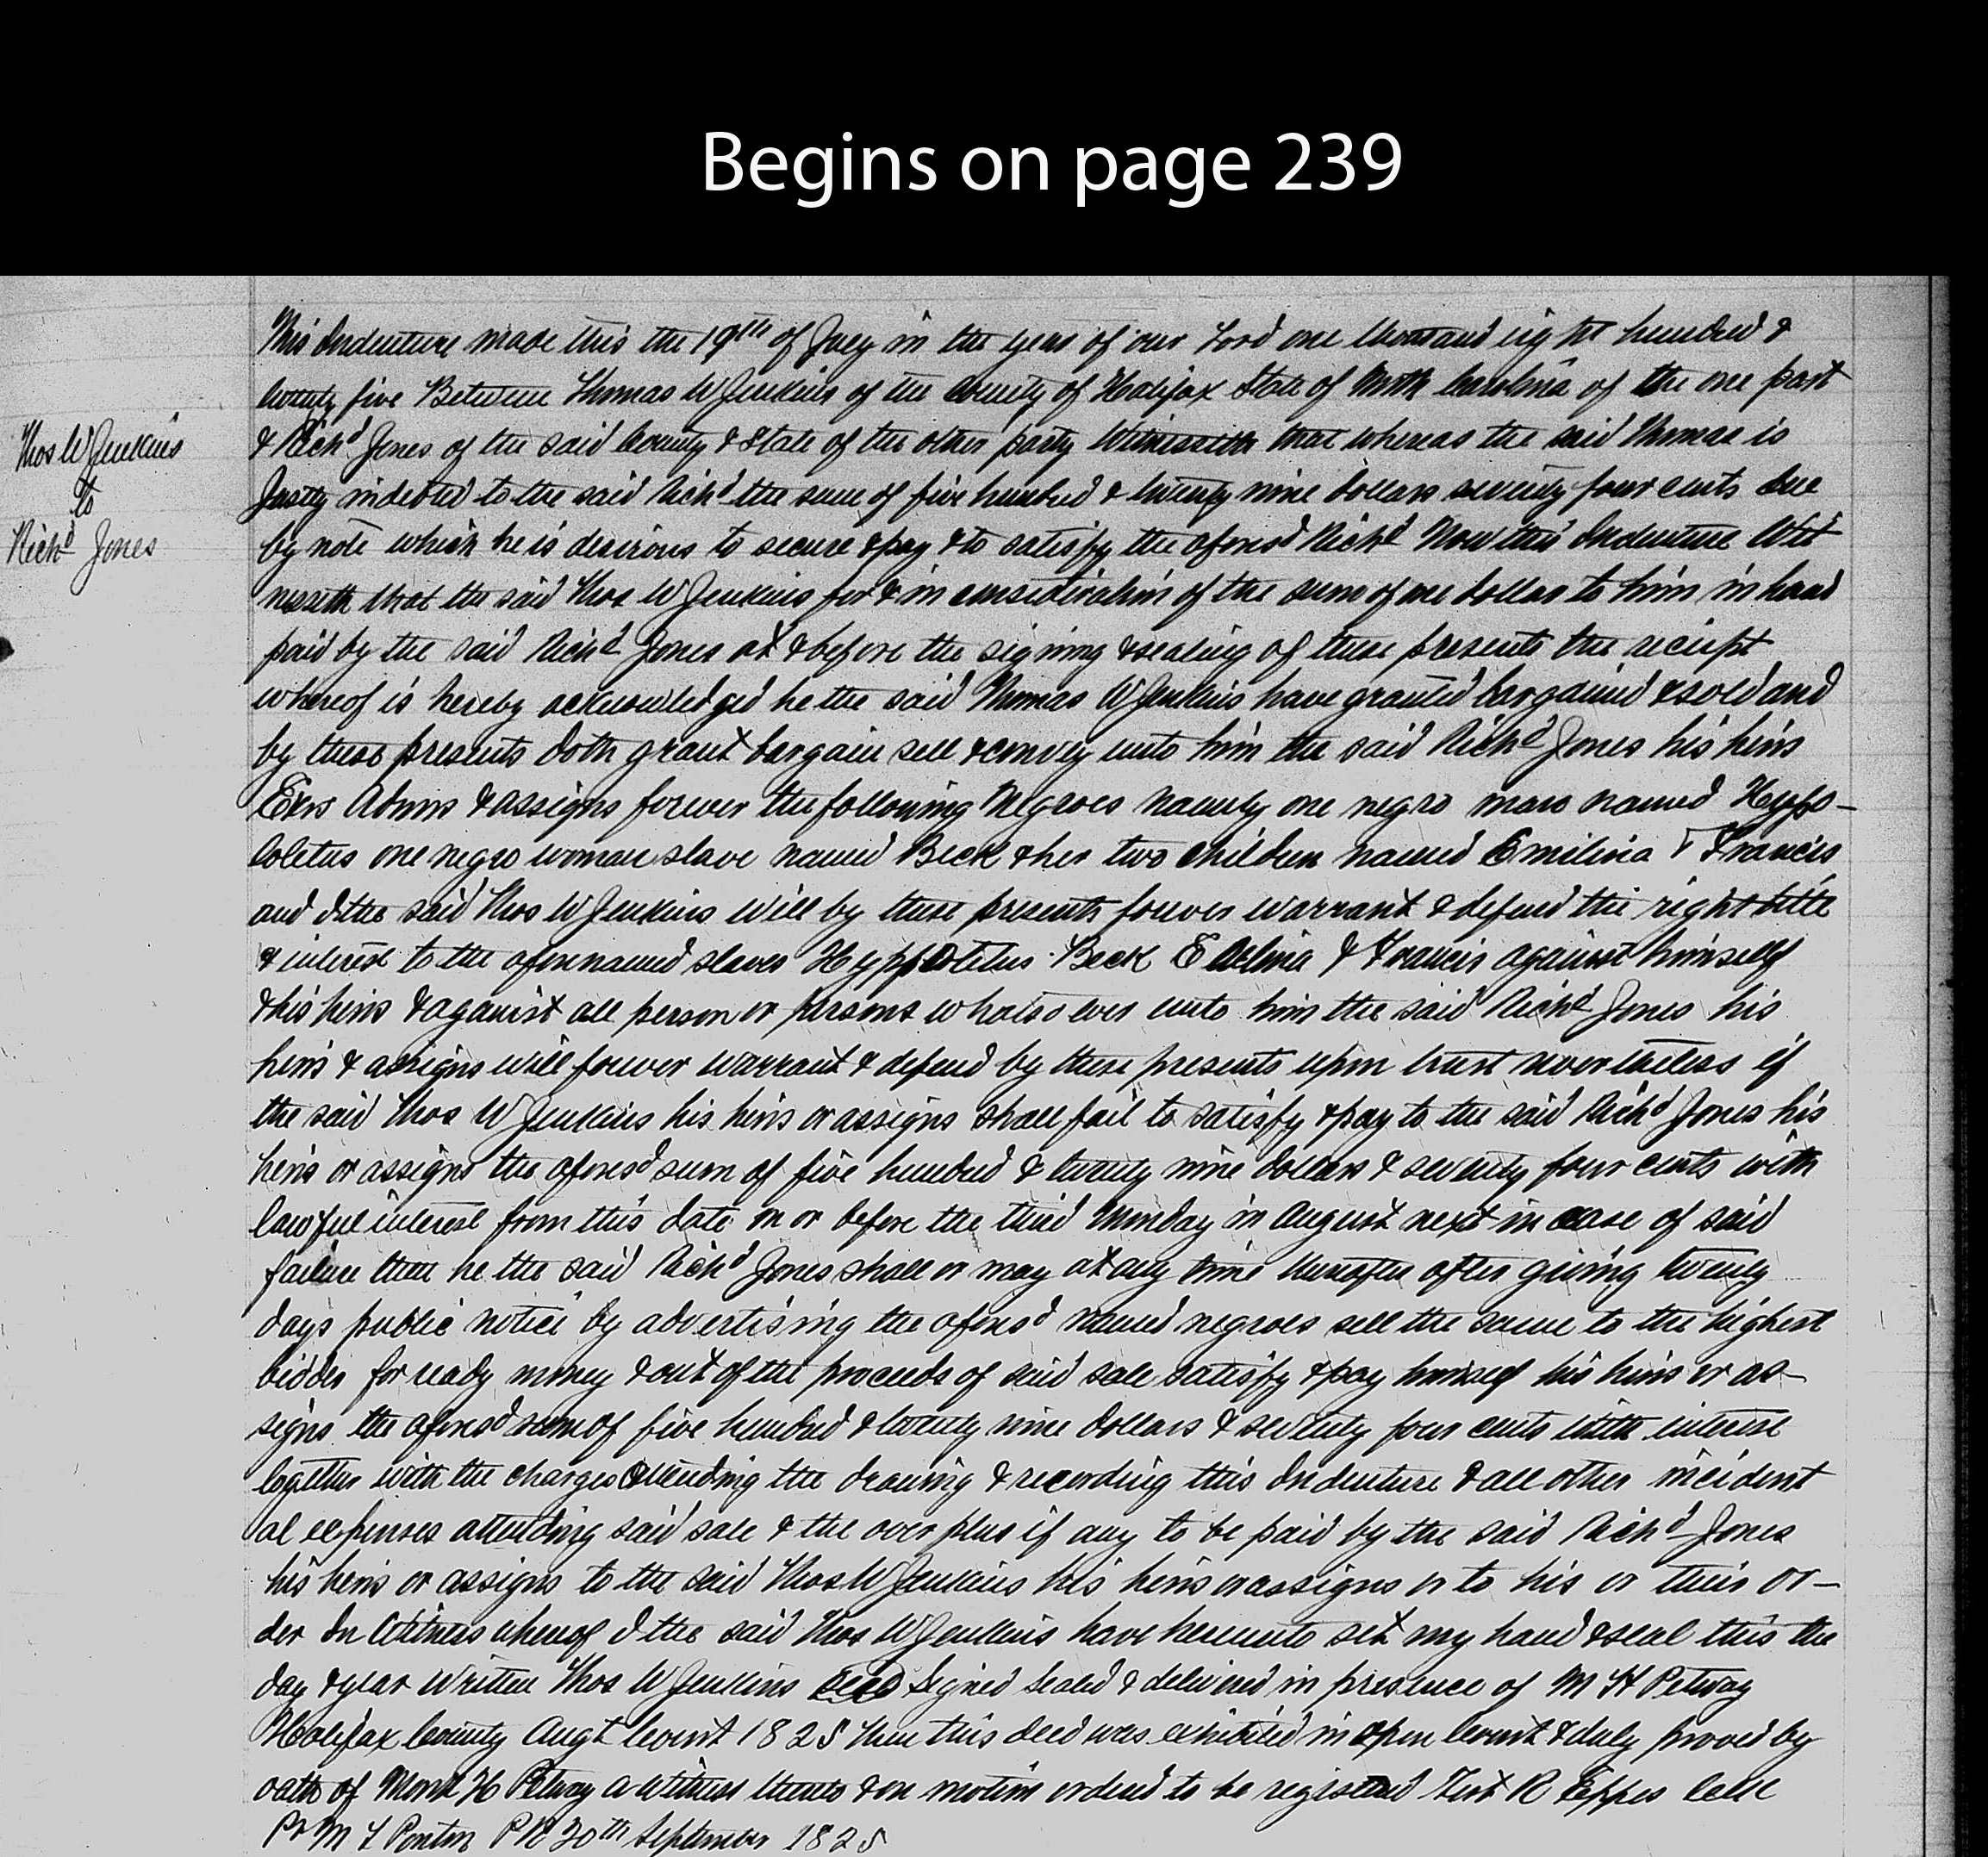 Begins on page 239
Thos W Jenkins
to
Richd Jones
This Indenture made this the 19th of July in the year of our Lord one thousand eight hundred &
twenty five Between Thomas W Jenkins of the County of Halifax State of North Carolina of the one part
& Richd Jones of the said County & State of the other party Witnesseth that whereas the said Thomas is
Justly indebted to the said Richd the sum of five hundred & twenty nine dollars seventy four cents due
by note which he is desirous to secure & pay & to satisfy the aforesd Richd Now this Indenture Wit
nesseth that the said Thos W Jenkins for & in consideration of the sum of one dollar to him in hand
paid by the said Richd Jones at & before the signing & sealing of these presents the receipt
whereof is hereby acknowledged he the said Thomas W Jenkins have granted bargained & sold and
by these presents doth grant bargain sell & convey unto him the said Richd Jones his heirs
Exrs Admrs & assigns forever the following Negroes namely one negro man named Hyppo-
loletus one negro woman slave named Beck & her two children named Emilina & Francis
and I the said Thos W Jenkins will by these presents forever warrant & defend the right title
& interest to the aforenamed slaves Hyppoletus Beck Emelina & Francis against himself
& his heirs & against all person or persons whatsoever unto him the said Richd Jones his
heirs & assigns will forever warrant & defend by these presents upon trust nevertheless if
the said Thos W Jenkins his heirs or assigns shall fail to satisfy & pay to the said Richd Jones his
heirs or assigns the aforesd sum of five hundred & twenty nine dollars & seventy four cents with
lawful interest from this date on or before the third Monday in August next in case of said
failure then he the said Richd Jones shall or may at any time thereafter after giving twenty
days public notice by advertising the aforesd named negroes sell the same to the highest
bidder for ready money & out of the proceeds of said sale satisfy & pay himself his heirs or as-
signs the aforesd sum of five hundred & twenty nine dollars & seventy four cents with interest
together with the charges attending the drawing & recording this Indenture & all other incident
al expenses attending said sale & the over plus if any to be paid by the said Richd Jones
his heirs or assigns to the said Thos W Jenkins his heirs or assigns or to his or their or-
der In Witness whereof I the said Thos W Jenkins have hereunto set my hand & seal this the
day & year Written Thos W Jenkins Seal Signed Sealed & delivered in presence of M H Petway
Halifax County Augt Court 1825 Then this deed was exhibited in open Court & duly proved by
oath of Mark H Petway a witness thereto & on motion ordered to be registered Test R Eppes Clk
Pr M L Ponton P R 20th September 1825